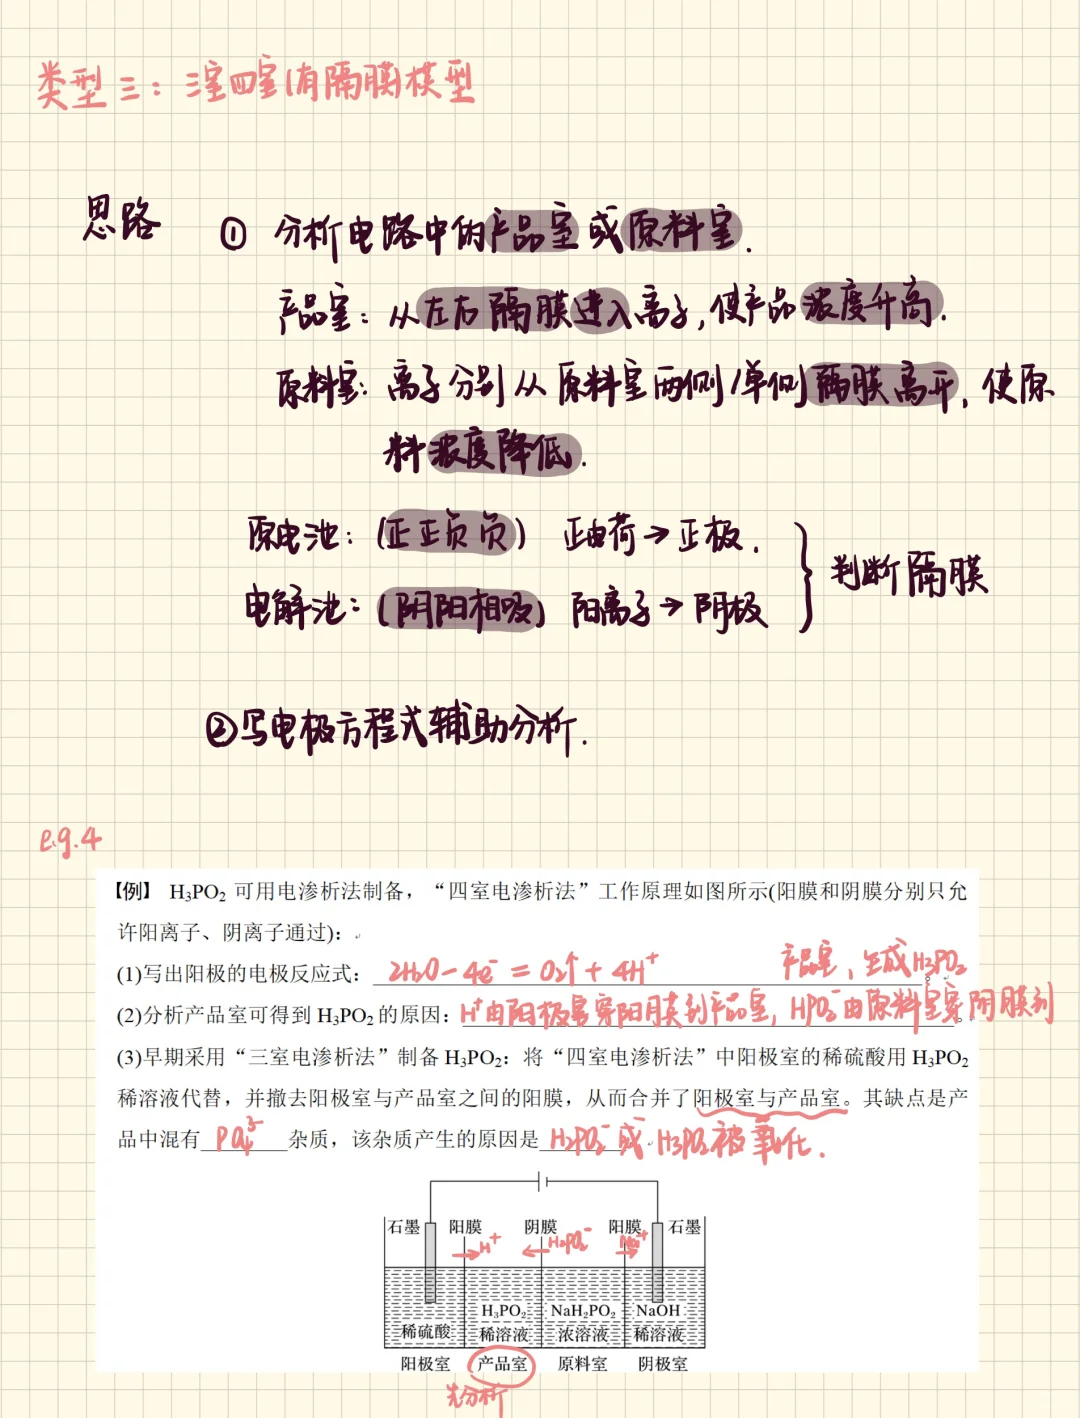 类型三：三室四室(有隔膜)模型
思路 ① 分析电路中的产品室或原料室.
产品室：从左右隔膜进入离子，使产品浓度升高.
原料室：离子分别从原料室两侧/单侧隔膜离开，使原
料浓度降低.
原电池：(正正负负) 正电荷→正极.
电解池：(阴阳相吸) 阳离子→阴极
判断隔膜
②写电极方程式辅助分析.
e.g.4
【例】 H₃PO₂ 可用电渗析法制备，“四室电渗析法”工作原理如图所示(阳膜和阴膜分别只允
许阳离子、阴离子通过)：
(1)写出阳极的电极反应式：2H₂O－4e⁻＝O₂↑＋4H⁺。
产品室，生成H₃PO₂
(2)分析产品室可得到 H₃PO₂ 的原因：H⁺由阳极室穿阳膜到产品室，H₂PO₂⁻由原料室穿阴膜到
(3)早期采用“三室电渗析法”制备 H₃PO₂：将“四室电渗析法”中阳极室的稀硫酸用 H₃PO₂
稀溶液代替，并撤去阳极室与产品室之间的阳膜，从而合并了阳极室与产品室。其缺点是产
品中混有 PO₄³⁻ 杂质，该杂质产生的原因是 H₂PO₂⁻或H₃PO₂被氧化.
石墨 阳膜 阴膜 阳膜 石墨
H⁺ H₂PO₂⁻ Na⁺
H₃PO₂ NaH₂PO₂ NaOH
稀硫酸 稀溶液 浓溶液 稀溶液
阳极室 产品室 原料室 阴极室
先分析